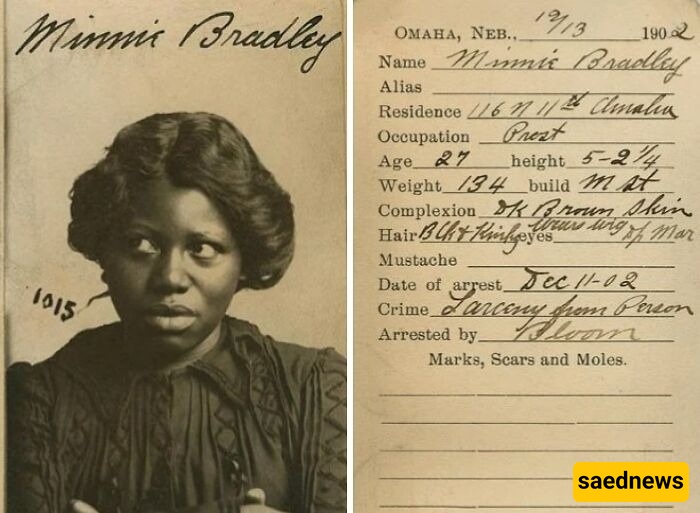 Minnie Bradley
1015
OMAHA, NEB., 12/13 1902
Name Minnie Bradley
Alias
Residence 116 N 11th Omaha
Occupation Prost
Age 27 height 5-2 1/4
Weight 134 build M St
Complexion Dk Brown Skin
Hair Blk & Kinky wears wig eyes Dp Mar
Mustache
Date of arrest Dec 11-02
Crime Larceny from Person
Arrested by Bloom
Marks, Scars and Moles.
saednews